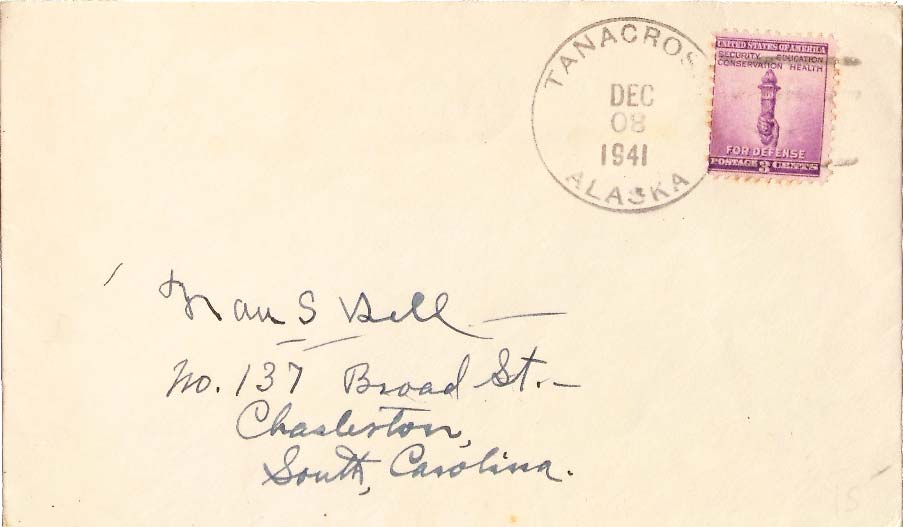 TANACROS
DEC
08
1941
ALASKA
UNITED STATES OF AMERICA
SECURITY EDUCATION
CONSERVATION HEALTH
FOR DEFENSE
POSTAGE 3 CENTS
S Bell
No. 137 Broad St.
Charleston,
South, Carolina.
15